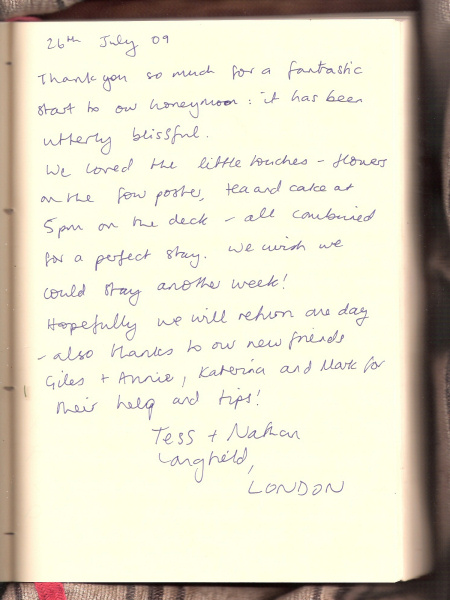 26th July 09
Thank you so much for a fantastic
start to our honeymoon: it has been
utterly blissful.
We loved the little touches - flowers
on the four poster, tea and cake at
5pm on the deck - all combined
for a perfect stay. We wish we
could stay another week!
Hopefully we will return one day
- also thanks to our new friends
Giles + Annie, Katerina and Mark for
their help and tips!
Tess + Nathan
Langfield,
LONDON